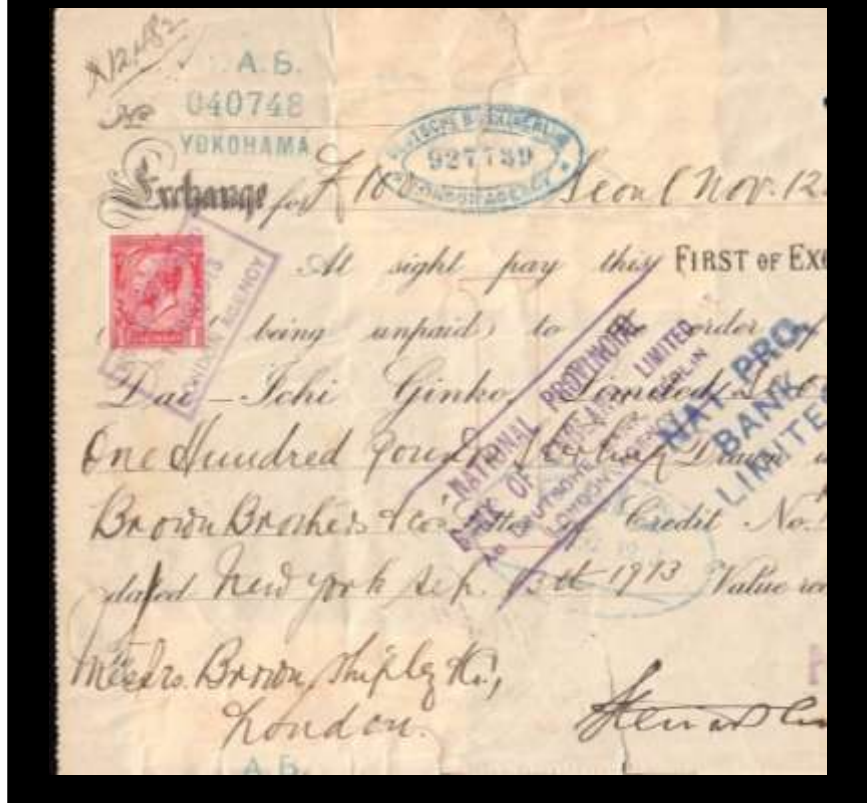 A.B.
No 040748
YOKOHAMA
DEUTSCHE BANK BERLIN
927739
LONDON AGENCY
Exchange for £ 10 Seoul Nov. 12
At sight pay this FIRST OF EX
being unpaid) to the order of
Dai-Ichi Ginko, Limited
One Hundred Pounds Sterling Drawn
Brown Brothers & Co's Letter of Credit No.
dated New York Sep. 13th 1913 Value
NATIONAL PROVINCIAL
BANK OF ENGLAND LIMITED
DEUTSCHE BANK BERLIN
LONDON AGENCY
NAT. PRO.
BANK
LIMITE
Messrs. Brown, Shipley & Co.,
London.
A.B.